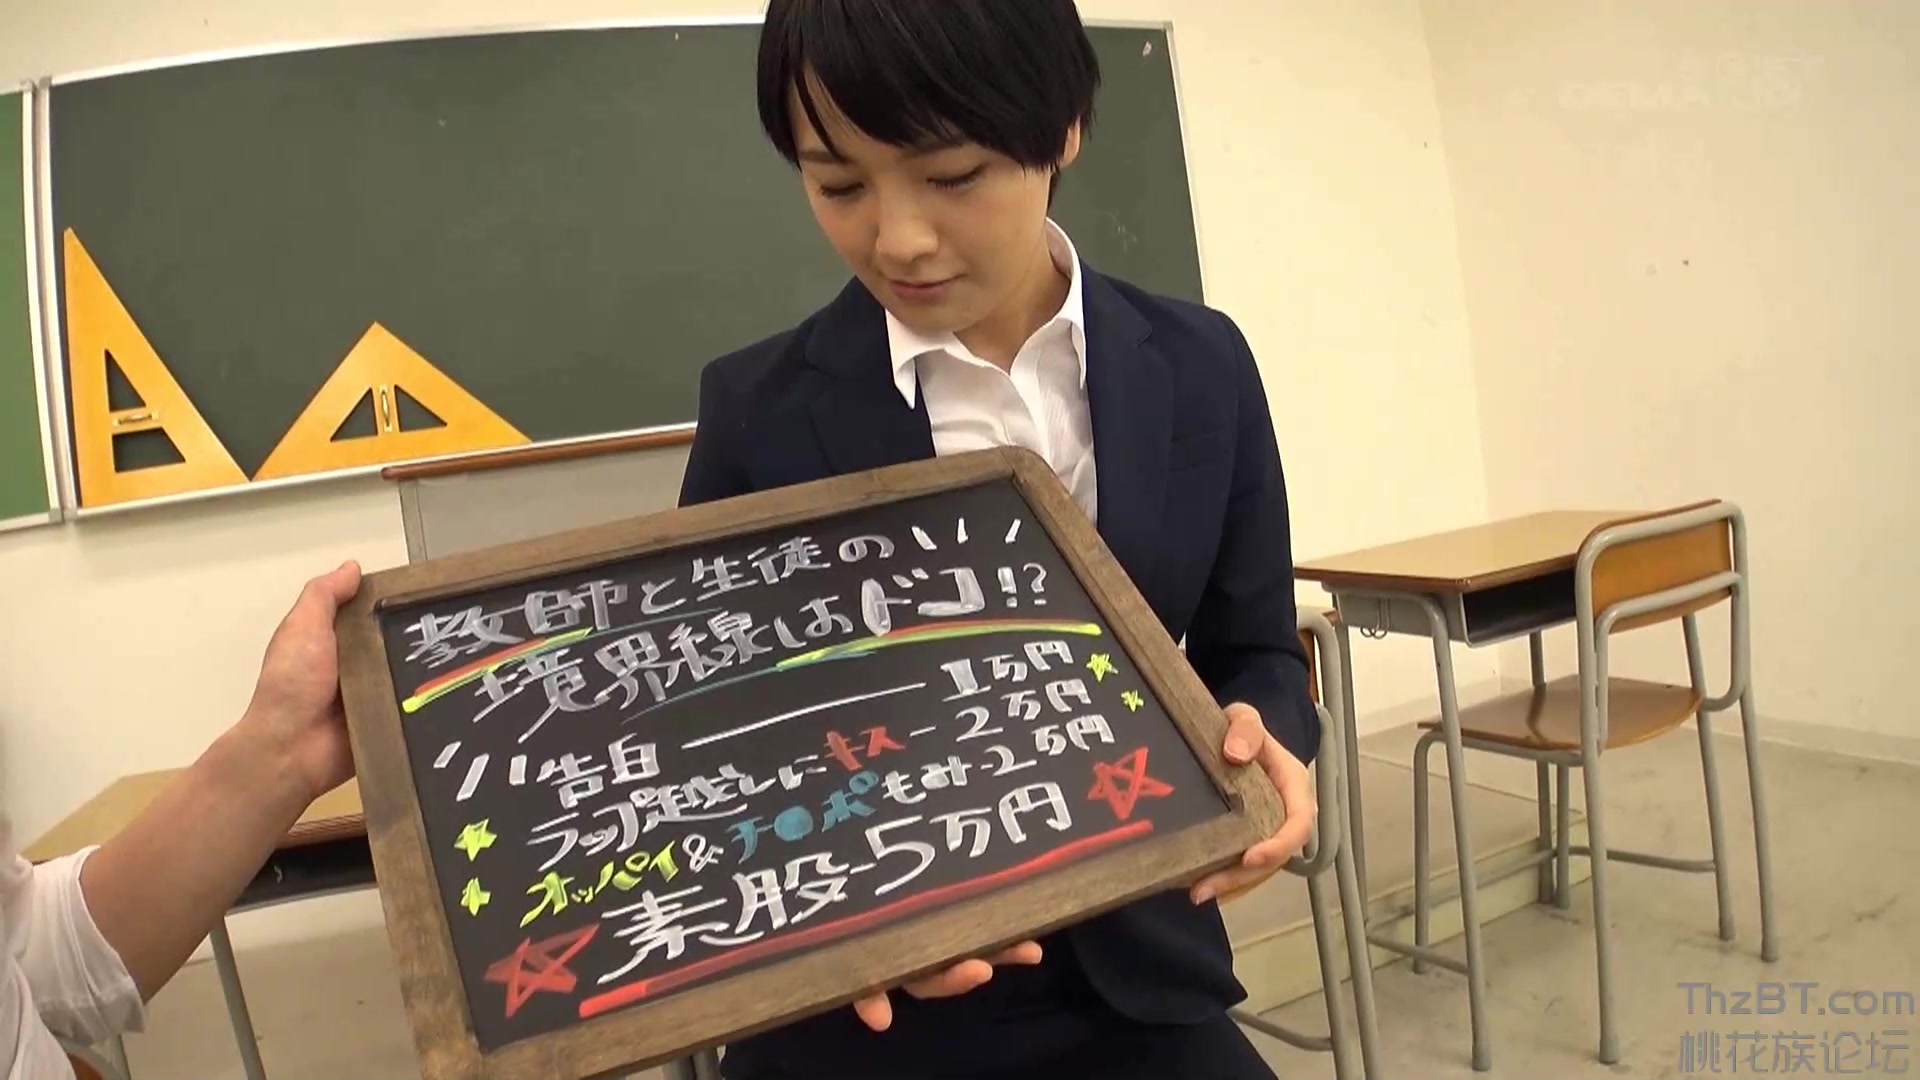 教師と生徒の
境界線はドコ!?
告白 ― 1万円
ラップ越しにキス - 2万円
オッパイ&チ●ポもみ-2万円
素股-5万円
ThzBT.com
桃花族论坛